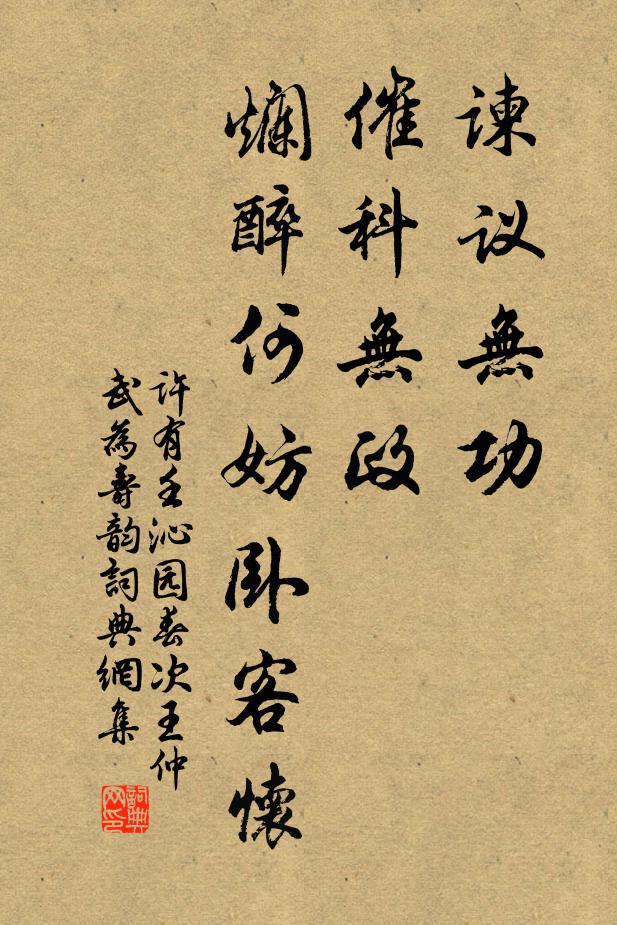 谏议無功
催科無政
爛醉何妨卧客懷
许有壬沁园春次王仲
武為壽韵詞典網集
詞典网印